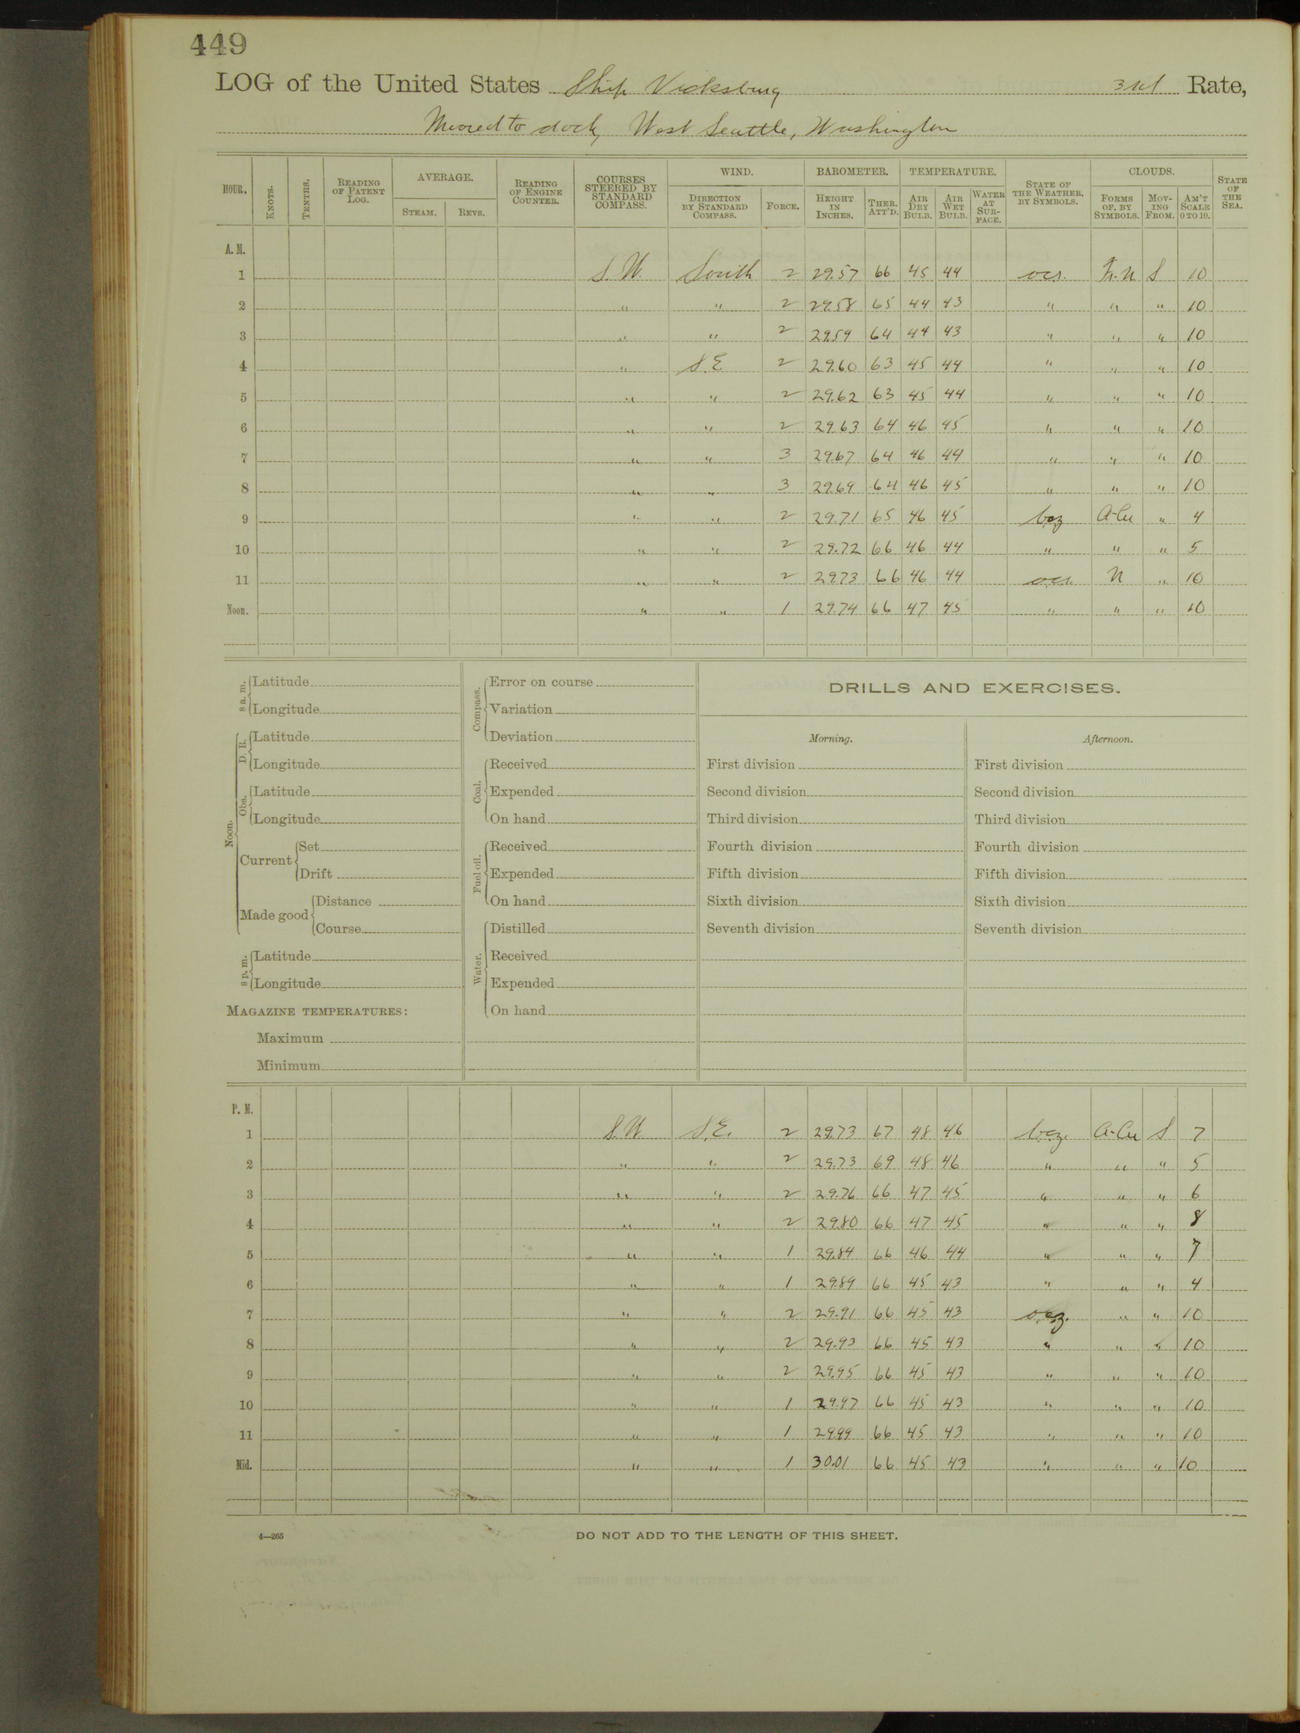 449
LOG of the United States Ship Vicksburg 3rd Rate,
Moored to dock, West Seattle, Washington
HOUR. KNOTS. TENTHS. READING OF PATENT LOG. AVERAGE. STEAM. REVS. READING OF ENGINE COUNTER. COURSES STEERED BY STANDARD COMPASS. WIND. DIRECTION BY STANDARD COMPASS. FORCE. BAROMETER. HEIGHT IN INCHES. THER. ATT'D. TEMPERATURE. AIR DRY BULB. AIR WET BULB. WATER AT SUR-FACE. STATE OF THE WEATHER, BY SYMBOLS. CLOUDS. FORMS OF, BY SYMBOLS. MOV-ING FROM. AM'T SCALE 0 TO 10. STATE OF THE SEA.
A. M.
1 South 2 29.57 66 45 44 S 10
2 " " 2 29.58 65 44 43 " " " 10
3 " " 2 29.59 64 44 43 " " " 10
4 " S.E. 2 29.60 63 45 44 " " " 10
5 " " 2 29.62 63 45 44 " " " 10
6 " " 2 29.63 64 46 45 " " " 10
7 " " 3 29.67 64 46 44 " " " 10
8 " " 3 29.69 64 46 45 " " " 10
9 " " 2 29.71 65 46 45 bcz A-Cu " 4
10 " " 2 29.72 66 46 44 " " " 5
11 " " 2 29.73 66 46 44 N " 10
Noon. " " 1 29.74 66 47 45 " " " 10
8 a. m. Latitude
Longitude
Noon. D. R. Latitude
Longitude
Obs. Latitude
Longitude
Current Set
Drift
Made good Distance
Course
8 p. m. Latitude
Longitude
MAGAZINE TEMPERATURES:
Maximum
Minimum
Compass. Error on course
Variation
Deviation
Coal. Received
Expended
On hand
Fuel oil. Received
Expended
On hand
Water. Distilled
Received
Expended
On hand
DRILLS AND EXERCISES.
Morning. Afternoon.
First division First division
Second division Second division
Third division Third division
Fourth division Fourth division
Fifth division Fifth division
Sixth division Sixth division
Seventh division Seventh division
P. M.
1 S.E. 2 29.73 67 48 46 bcz. A-Cu S 7
2 " " 2 29.73 69 48 46 " " " 5
3 " " 2 29.76 66 47 45 " " " 6
4 " " 2 29.80 66 47 45 " " " 8
5 " " 1 29.84 66 46 44 " " " 7
6 " " 1 29.89 66 45 43 " " " 4
7 " " 2 29.91 66 45 43 ocz. " " 10
8 " " 2 29.93 66 45 43 " " " 10
9 " " 2 29.95 66 45 43 " " " 10
10 " " 1 29.97 66 45 43 " " " 10
11 " " 1 29.99 66 45 43 " " " 10
Mid. " " 1 30.01 66 45 43 " " " 10
4—265 DO NOT ADD TO THE LENGTH OF THIS SHEET.